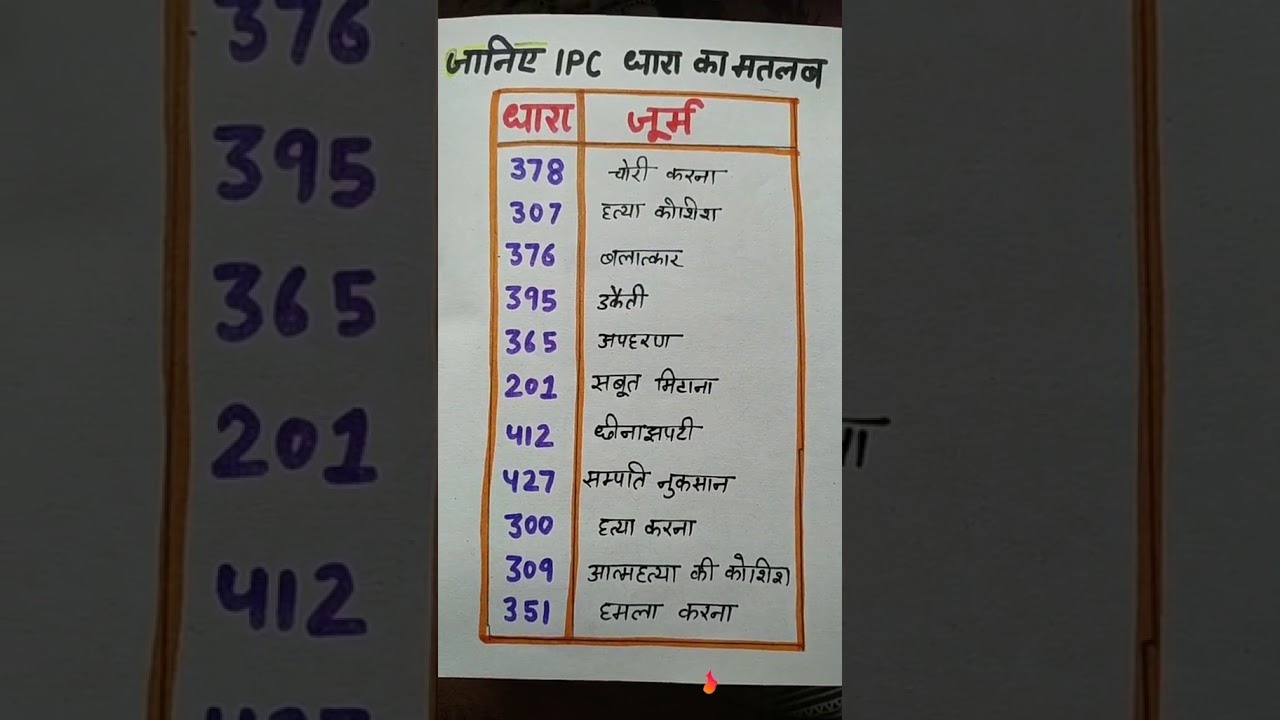 जानिए IPC धारा का मतलब
धारा जूर्म
378 चोरी करना
307 हत्या कोशिश
376 बलात्कार
395 डकैती
365 अपहरण
201 सबूत मिटाना
412 छीनाझपटी
427 सम्पति नुकसान
300 हत्या करना
309 आत्महत्या की कोशिश
351 हमला करना
376
395
365
201
412